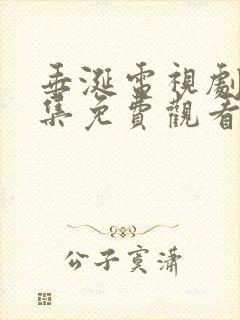 垂涎電視劇
集免費觀看
公子寞瀟